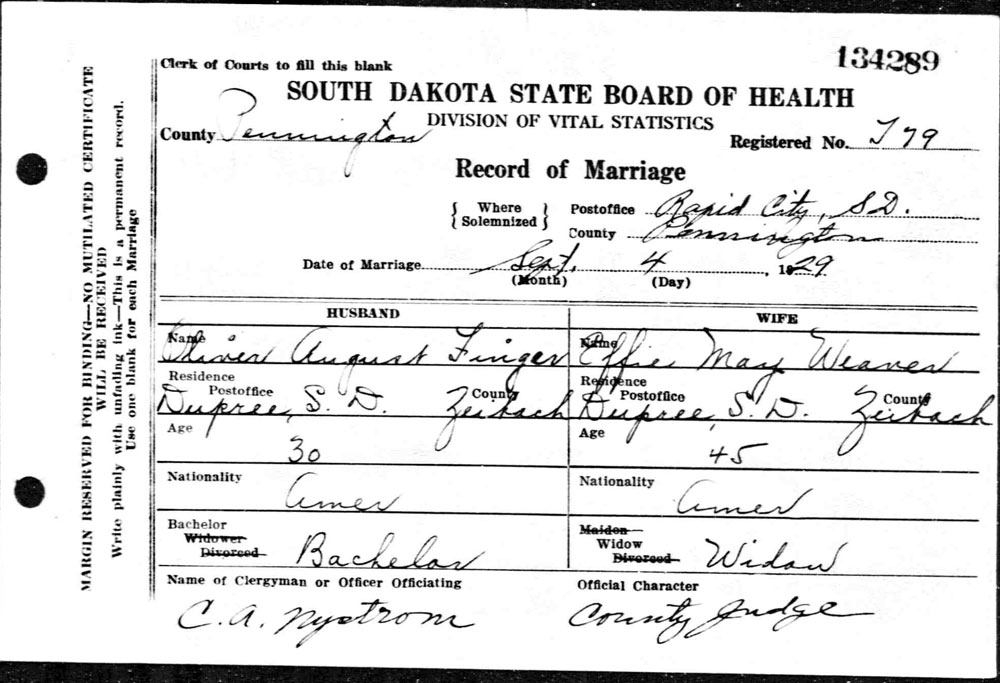 134289
Clerk of Courts to fill this blank
SOUTH DAKOTA STATE BOARD OF HEALTH
DIVISION OF VITAL STATISTICS
County Pennington
Registered No. 779
Record of Marriage
{ Where Solemnized } Postoffice Rapid City, S.D.
County Pennington
Date of Marriage Sept. 4, 1929
(Month) (Day)
HUSBAND WIFE
Name Oliver August Finger Name Effie May Weaver
Residence Residence
Postoffice County Postoffice County
Dupree, S. D. Zeibach Dupree, S. D. Zeibach
Age 30 Age 45
Nationality Amer Nationality Amer
Bachelor Maiden
Widower Widow
Divorced Bachelor Divorced Widow
Name of Clergyman or Officer Officiating Official Character
C. A. Nystrom County Judge
MARGIN RESERVED FOR BINDING—NO MUTILATED CERTIFICATE
WILL BE RECEIVED
Write plainly with unfading ink—This is a permanent record.
Use one blank for each Marriage